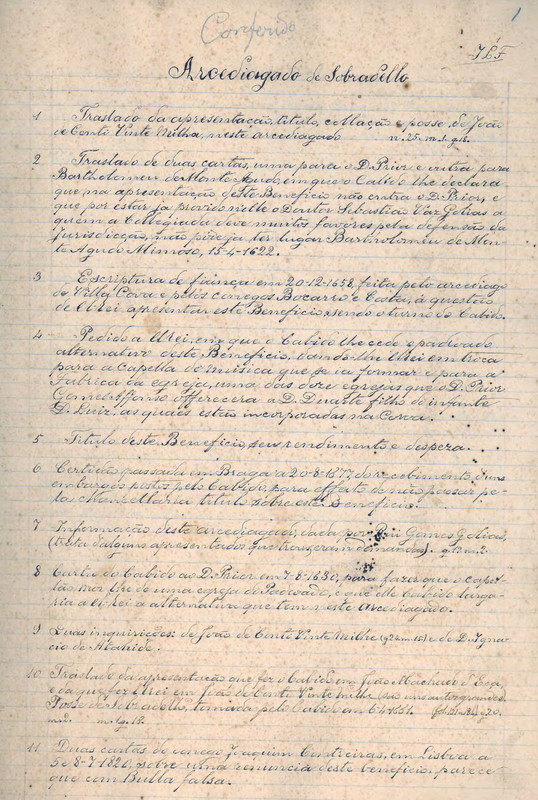 1
Conferido
Arcediagado de Sobradello
1 Traslado da apresentação, titulo, collação e posse de João
de Conti Vinte Milha, neste arcediagado
2 Traslado de duas cartas, uma para o D. Prior e outra para
Bartholomeu de Monte Agudo, em que o Cabido lhe declara
que na apresentação deste Beneficio não entra o D. Prior, e
que por estar já provido nelle o Doutor Sebastião Vaz Golias a
quem a Collegiada deve muitos favores pela defensão da
Jurisdicção, não pode já ter lugar Bartholomeu de Mon-
te Agudo Mimoso, 15-4-1622.
3 Escriptura de fiança em 20-12-1658, feita pelo arcediago
de Villa Cova e pelos conegos Bocarro e Costa, á questão
de El-rei apresentar este Beneficio, sendo o turno do Cabido.
4 Pedido a El-rei, em que o Cabido lhe cede o padroado
alternativo deste Beneficio, dando-lhe El-rei em troca
para a Capella de musica que se ia formar e para a
Fabrica da egreja, uma das doze egrejas que o D. Prior
Gomes Affonso offerecera a D. Duarte filho do infante
D. Luiz, as quaes estão incorporadas na Coroa.
5 Titulo deste Beneficio, seu rendimento e despeza.
6 Certidão passada em Braga a 20-8-1677, do recebimento d'uns
embargos postos pelo Cabido, para effeito de não passar pe-
la chancellaria titulo sobre este beneficio.
7 Informação deste arcediagado, dada por Rui Gomes Golias,
(trata d'alguns apresentados que trouxeram demandas).
8 Carta do Cabido ao D. Prior em 7-8-1650, para fazer que o Capel-
lão mor lhe dê uma egreja do Padroado, e que elle Cabido larga-
ria a El-rei a alternativa que tem neste Arcediagado.
9 Duas inquirições: de João de Conti Vinte Milhe e de D. Igna-
cio de Atahide.
10 Traslado da apresentação que fez o Cabido em João Machado d'Eça,
e da que fez El-rei em João de Conti Vinte Milha
Posse de Sobradello, tomada pelo Cabido em 6-4-1651.
11 Duas cartas do conego Joaquim Contreiras, em Lisboa a
5 e 8-7-1820, sobre uma renuncia deste beneficio, parece
que com Bulla falsa.